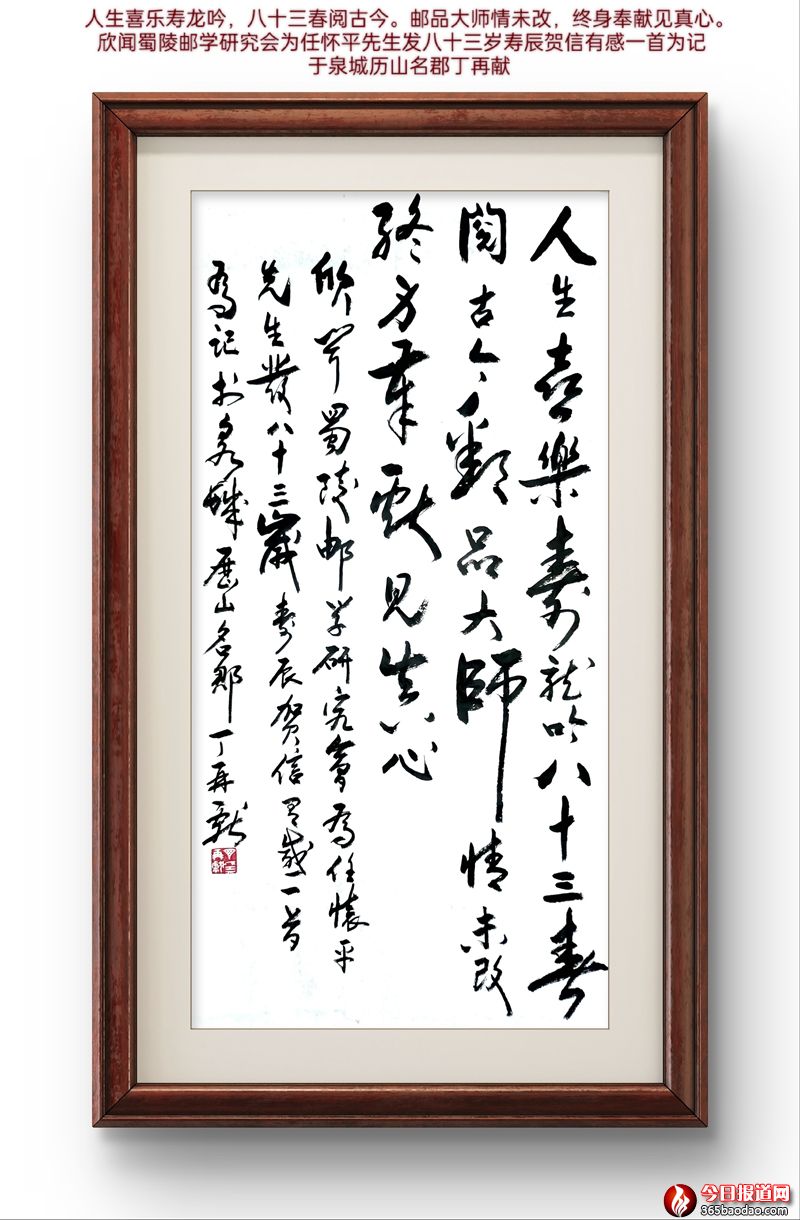 人生喜乐寿龙吟，八十三春阅古今。邮品大师情未改，终身奉献见真心。
欣闻蜀陵邮学研究会为任怀平先生发八十三岁寿辰贺信有感一首为记
于泉城历山名郡丁再献
人生喜樂壽龍吟八十三春
閱古今郵品大師情未改
終身奉献見真心
欣闻蜀陵邮学研究會為任懷平
先生發八十三歲壽辰賀信有感一首
為記於泉城歷山名郡丁再獻
今日报道网
365baodao.com